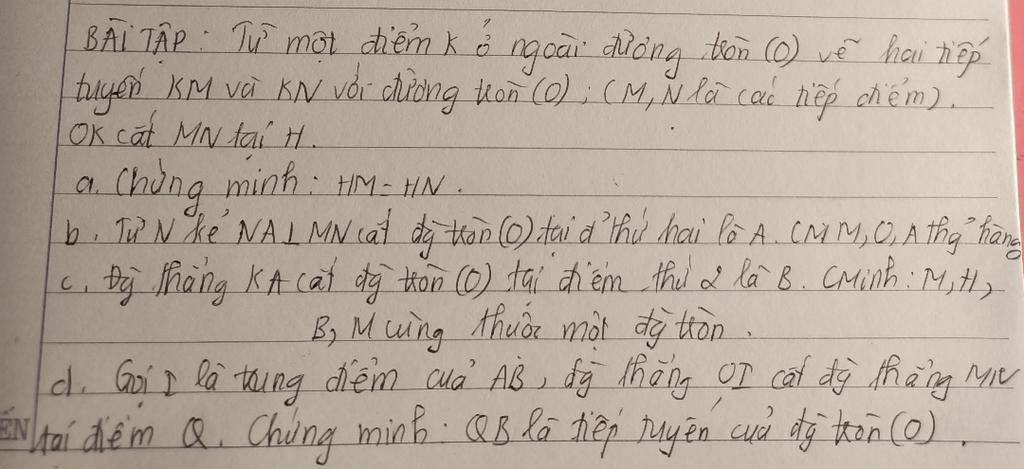 BÀI TẬP: Từ một điểm K ở ngoài đường tròn (O) vẽ hai tiếp
tuyến KM và KN với đường tròn (O); (M, N là các tiếp điểm).
OK cắt MN tại H.
a. Chứng minh: HM = HN.
b. Từ N kẻ NA ⊥ MN cắt đg tròn (O) tại đ' thứ hai là A. CM M, O, A thg' hàng
c. Đg thẳng KA cắt đg tròn (O) tại điểm thứ 2 là B. CMinh: M, H,
B, M cùng thuộc một đg tròn.
d. Gọi I là trung điểm của AB, đg thẳng OI cắt đg thẳng MN
ẾN tại điểm Q. Chứng minh: QB là tiếp tuyến của đg tròn (O).